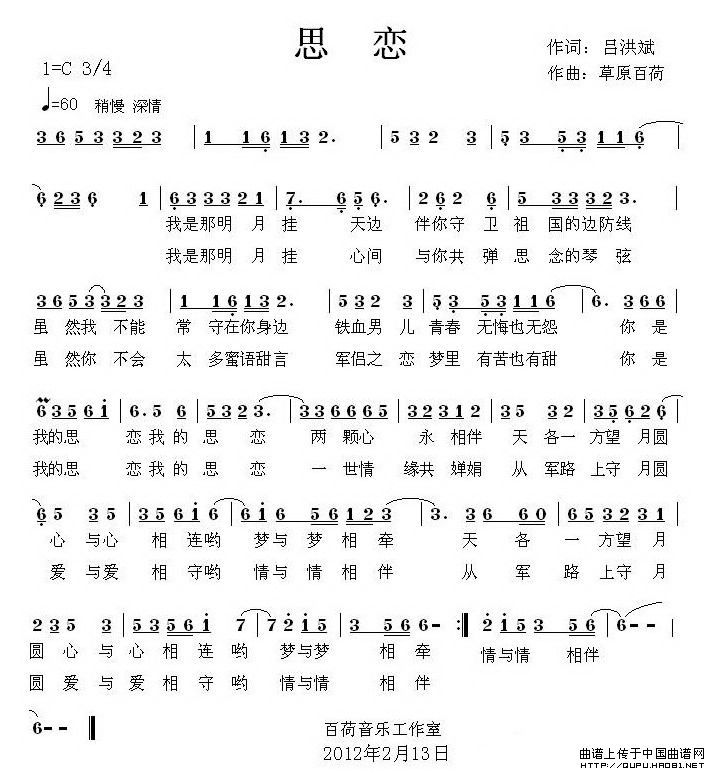 思 恋
作词：吕洪斌
1=C 3/4
作曲：草原百荷
♩=60 稍慢 深情
3 6 5 3 5 3 2 3 | 1 1 6 1 3 2. | 5 3 2 3 | 5 3 5 3 1 1 6
6 2 3 6 1 | 6 3 3 3 2 1 | 7. 6 5 6. | 2 6 2 6 | 5 5 3 3 3 2 |
我是那明 月 挂 天边 伴你守 卫 祖 国的边防线
我是那明 月 挂 心间 与你共 弹 思 念的琴 弦
3 6 5 3 3 2 3 | 1 1 6 1 3 2. | 5 3 2 3 | 5 3 5 3 1 1 6 | 6. 3 6 6 |
虽 然我 不能 常 守在你身边 铁血男 儿 青春 无悔也无怨 你 是
虽 然你 不会 太 多蜜语甜言 军侣之 恋 梦里 有苦也有甜 你 是
6 3 5 6 i | 6. 5 6 | 5 3 2 3. | 3 3 6 6 6 5 | 3 2 3 1 2 | 3 5 3 2 | 3 5 6 2 6
我的思 恋我的 思 恋 两 颗心 永 相伴 天 各一 方望 月圆
我的思 恋我的 思 恋 一 世情 缘共 婵娟 从 军路 上守 月圆
6 5 3 5 | 5 3 5 6 i 7 | 6 i 6 5 6 1 2 3 | 3. 3 6 6 6 0 | 5 6 5 2 3 1 |
心 与心 相 连哟 梦与 梦 相 牵 天 各 一 方望 月
爱 与爱 相 守哟 情与 情 相 伴 从 军 路 上守 月
2 3 5 3 | 5 3 5 6 i 7 | 7 2 i 5 | 3 5 6 6 - :| 2 i 5 3 5 6 | 6 - -
圆 心 与 心 相 连 哟 梦 与梦 相 牵 情 与情 相伴
圆 爱 与 爱 相 守 哟 情 与情 相 伴
6 - - ‖
百荷音乐工作室
2012年2月13日
曲谱上传于中国曲谱网
http://QUPU.HAO81.NET